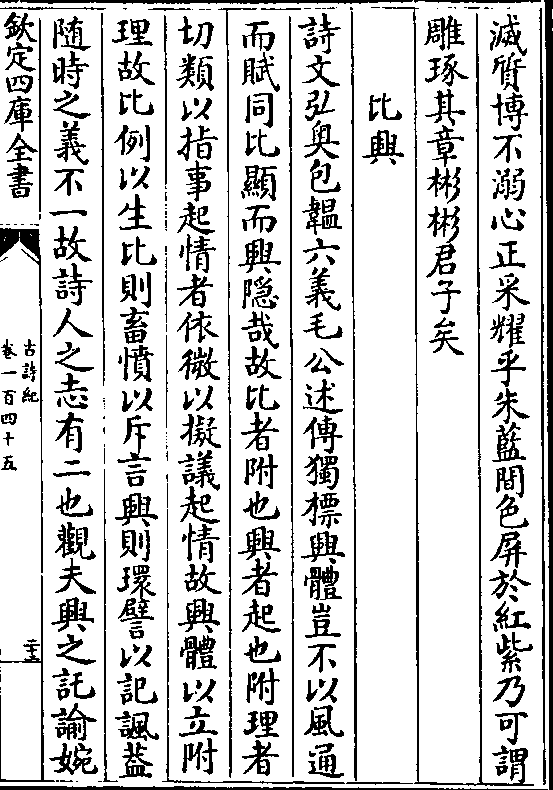 滅質博不溺心正采耀乎朱藍間色屏於紅紫乃可謂
雕琢其章彬彬君子矣
比興
詩文弘奥包韞六義毛公述傳獨摽興體豈不以風通
而賦同比顯而興隠哉故比者附也興者起也附理者
切類以指事起情者依微以擬議起情故興體以立附
理故比例以生比則畜憤以斥言興則環譬以記諷葢
随時之義不一故詩人之志有二也觀夫興之託諭婉
欽定四庫全書
古詩紀
卷一百四十五
二十五